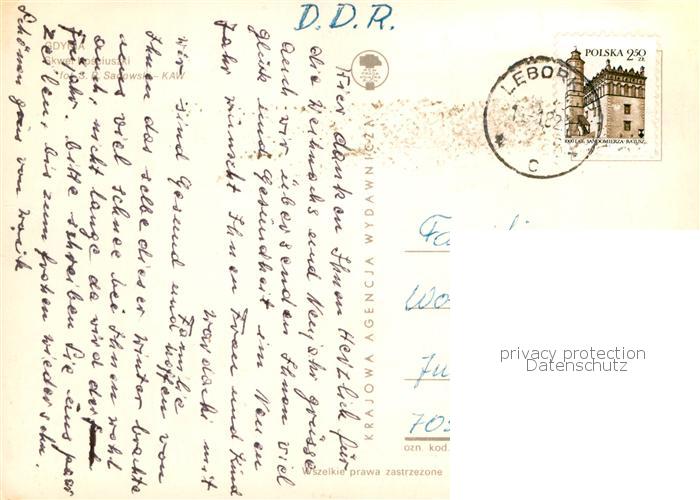 D.D.R.
POLSKA 250 ZŁ
1000 LAT SANDOMIERZA · RATUSZ
LĘBORK
C
GDYNIA
Skwer Kościuszki
fot. S. A. Sadowski – KAW
KRAJOWA AGENCJA WYDAWNICZA
Wir danken Ihnen Hertzlich für
die Weihnachs und Neujahr grüsse
auch wir übersenden Ihnen viel
glück und Gesundheit im Neuen
Jahr wünscht Ihnen Frau und Kind
Familie mit
Wir sind Gesund und hoffen von
Ihnen das selbe dieser Winter brachte
uns viel Schnee bei Ihnen wohl
auch, nicht lange da wird der
Frühjahr. bitte schreiben Sie uns paar
Zeilen, bis zum frohen wiedersehn.
Schönen grus von
Fa
Wo
Ju
705
ozn. kod.
Wszelkie prawa zastrzeżone
privacy protection
Datenschutz